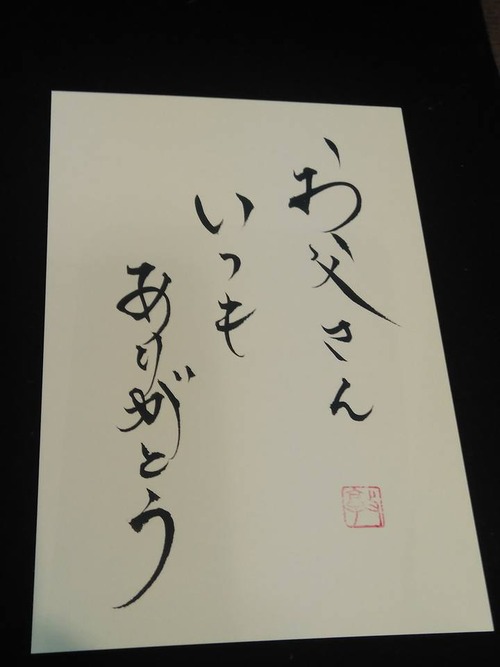 お父さん
いつも
ありがとう